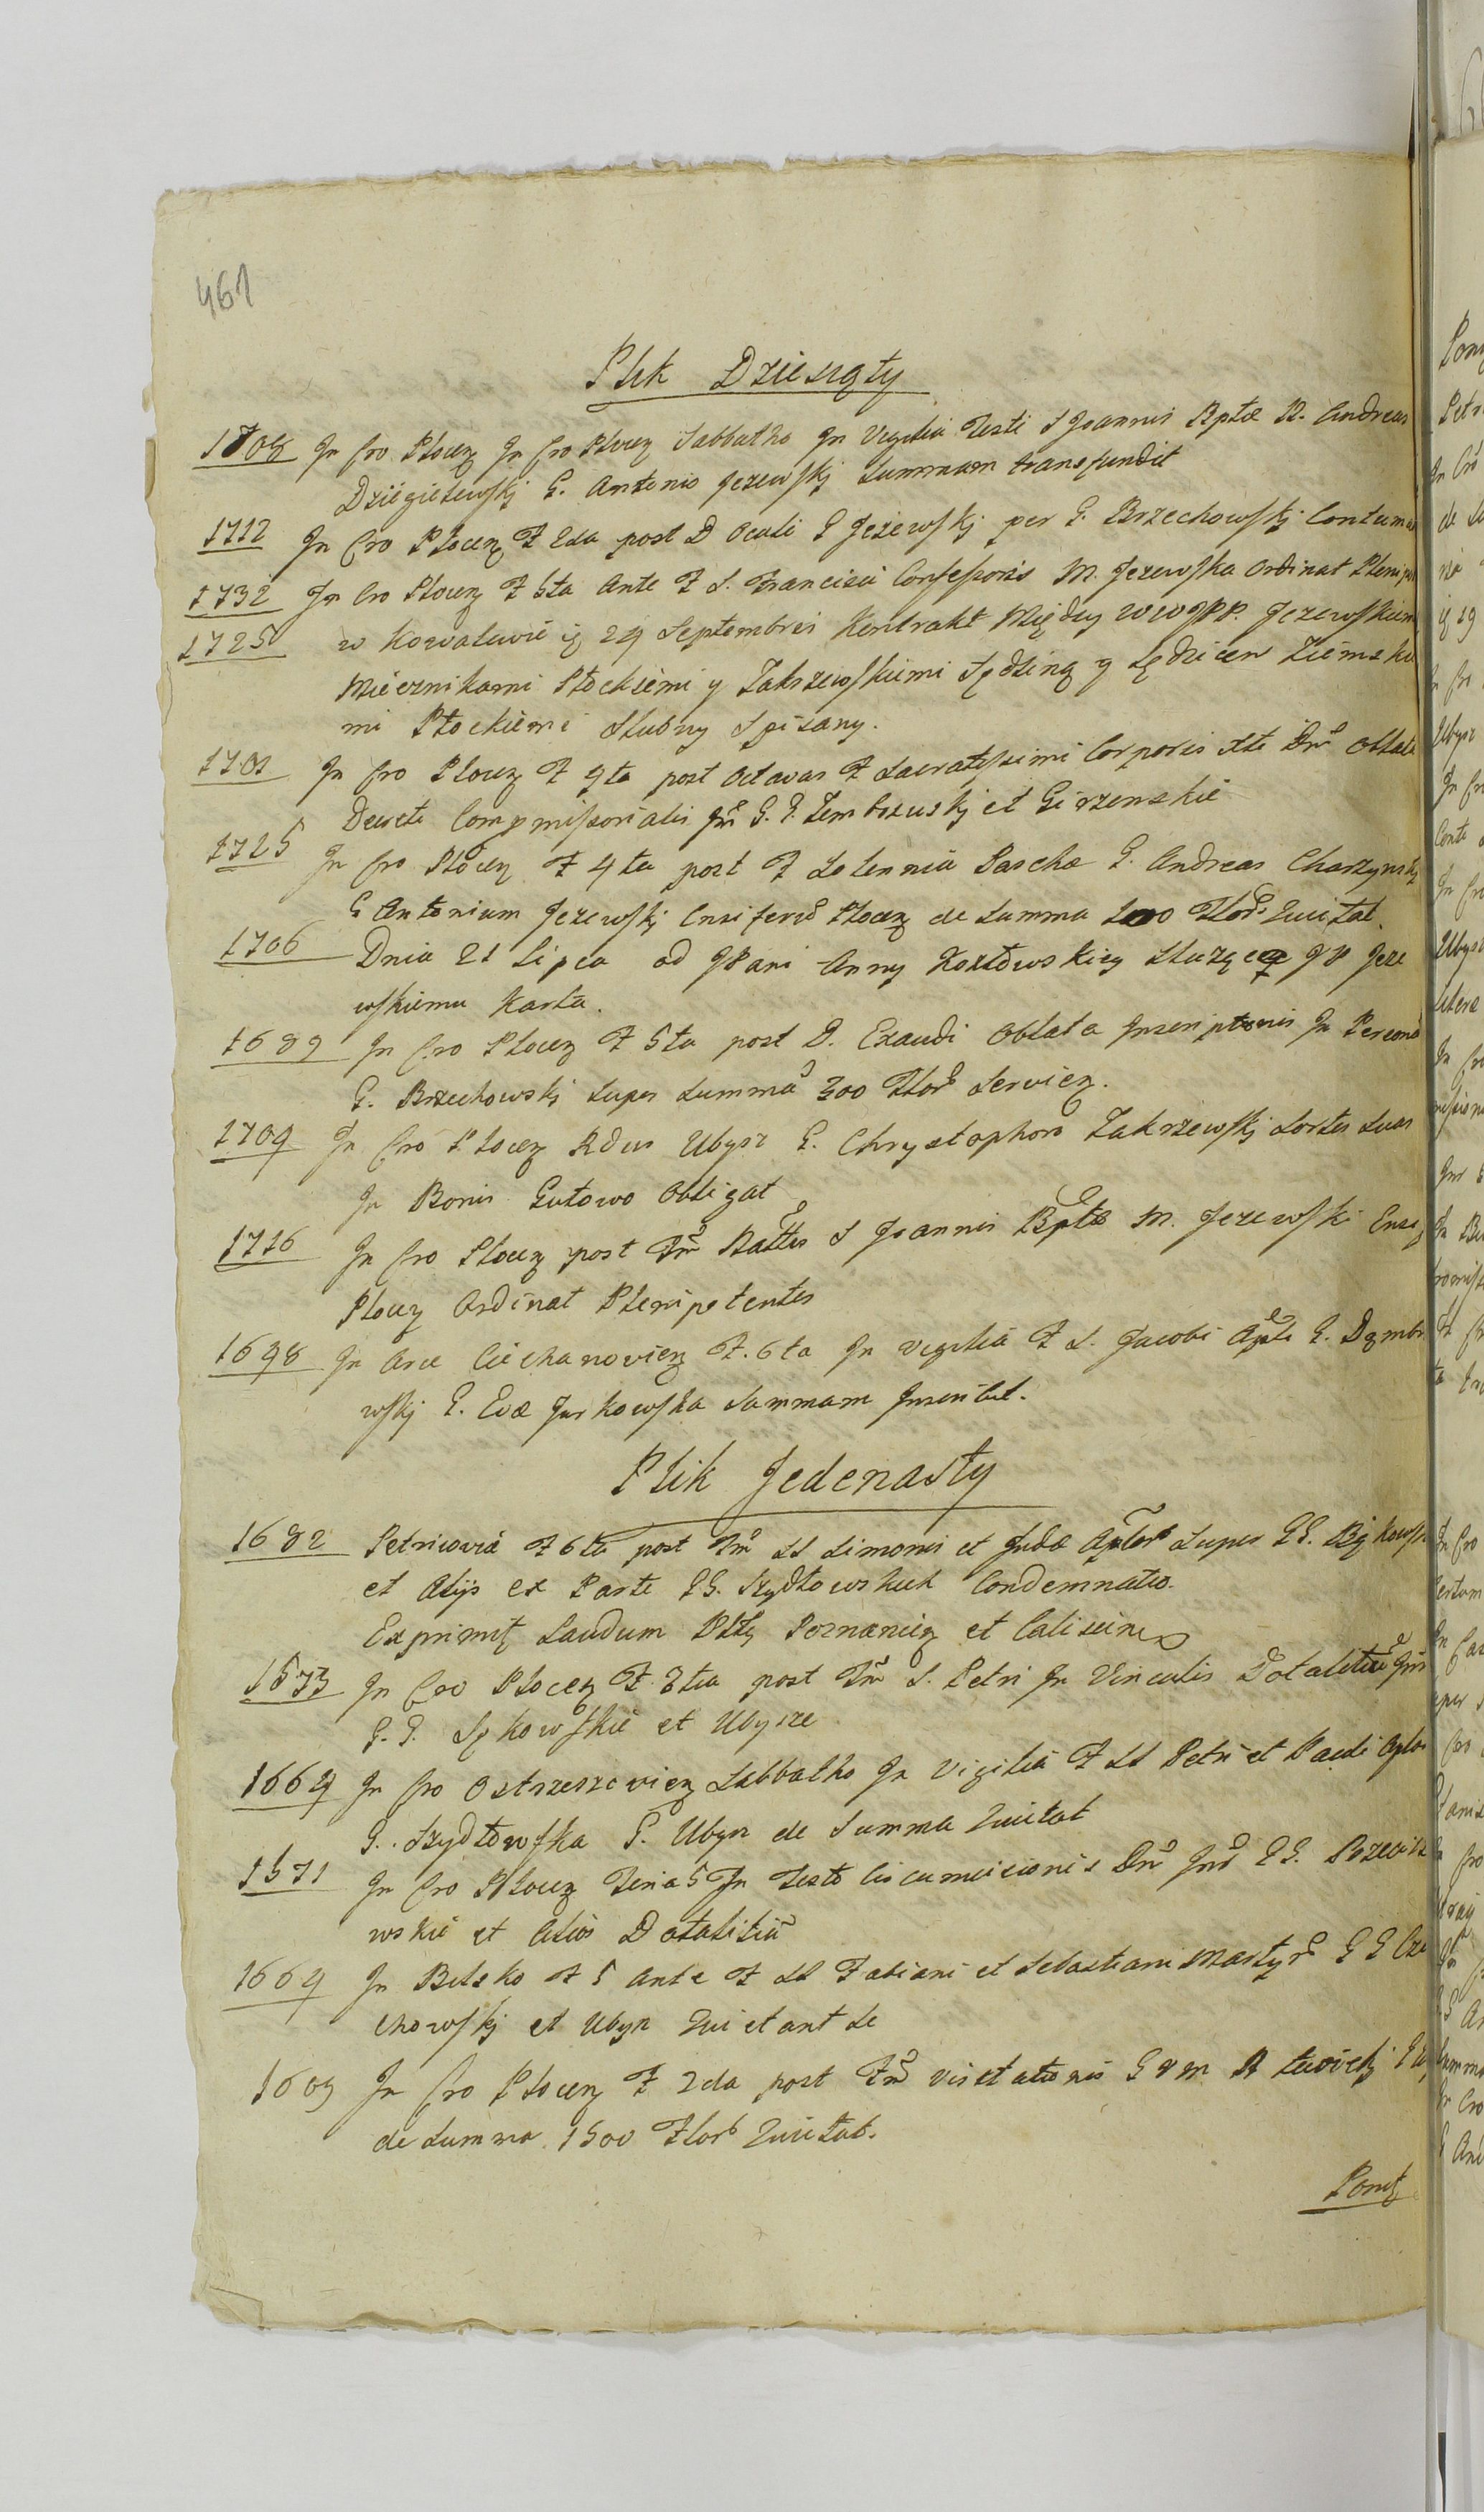 461
Plik Dziesiąty
1708 Jn Cro Plocen Jn Cro Plocen Sabbatho Jn Vigilia Festi S Joannis Bptæ R. Andreas
Dzięgielewskj G. Antonio Jezewskj Summam transfundit
1712 Jn Cro Plocen F 2da post D Oculi G Jeżewskj per G. Brzechowskj Contuma
1732 Jn Cro Plocen F 5ta Ante F S. Francisci Confessoris M. Jezewska Ordinat Plenip
1725 w Kowalewie ię 24 Septembris Kontrakt Między WWJPP. Jezewskiem
Miecznikami Płockiemi y Zakrzewskiemi Sędziną y Sędzicem Ziemski
mi Płockiemi Slubny Spisany.
1701 Jn Cro Plocen F 4ta post Octavas F Sacratissimi Corporis Xti Dni Oblata
Decreti Compmissorialis Jnr G. G. Zembrzuskj et Girzenskie
1725 Jn Cro Plocen F 4ta post F Solennia Paschæ G. Andreas Charzynskj
G Antonium Jezewskj Ensiferū Plocen de Summa 1000 Flor. Quietat.
1706 Dnia 21 Lipca od JPani Anny Kozłowskiey Służące JP Jeze
wskiemu Karta.
1689 Jn Cro Plocen F 5ta post D. Exaudi Oblata Jnscriptionis Jn Personā
G. Brzechowskj Super Summā 300 Flor Servien.
1704 Jn Cro Plocen Rdus Ubysz G. Chrystophoro Zakrzewskj Sortes Suas
Jn Bonis Gutowo Obligat
1716 Jn Cro Plocen post Fm Nattis S Joannis Bptæ M. Jezewski Ensif
Plocen Ordinat Plenipotentes
1698 Jn Arce Ciechanovien F. 6ta Jn Vigilia F S. Jacobi Apli G. Dąmbr
wskj G. Evæ Jurkowska Summam Jnscribit.
Plik Jedenasty
1682 Petricoviæ F 6ta post Fm SS Simonis et Judæ Aplor Super GG. Bykowsk
et Alijs ex Parte GG. Szydłowskich Condemnatio.
Exprimit Laudum Pltū Poznanien et Calisien
1573 Jn Cro Plocen F. 3tia post Fm S. Petri Jn Vinculis Dotalitiū Jnr
G. G. Sękowskie et Ubysze
1664 Jn Cro Ostrzeszovien Sabbatho Jn Vigilia F SS Petri et Pauli Aplor
G. Szydłowska G. Ubysz de Summa Quietat
1571 Jn Cro Plocen Feria 5 Jn Festo Circumcisionis Dni Jnr GG.
wskie et Alios Dotalitiū
1664 Jn Bilsko F 5 Ante F SS Fabiani et Sebastiani Martyr G G
chowskj et Ubysz Quietant Se
1609 Jn Cro Plocen F 2da post Fm Visitationis
de Summa 1500 Flor Quietat.